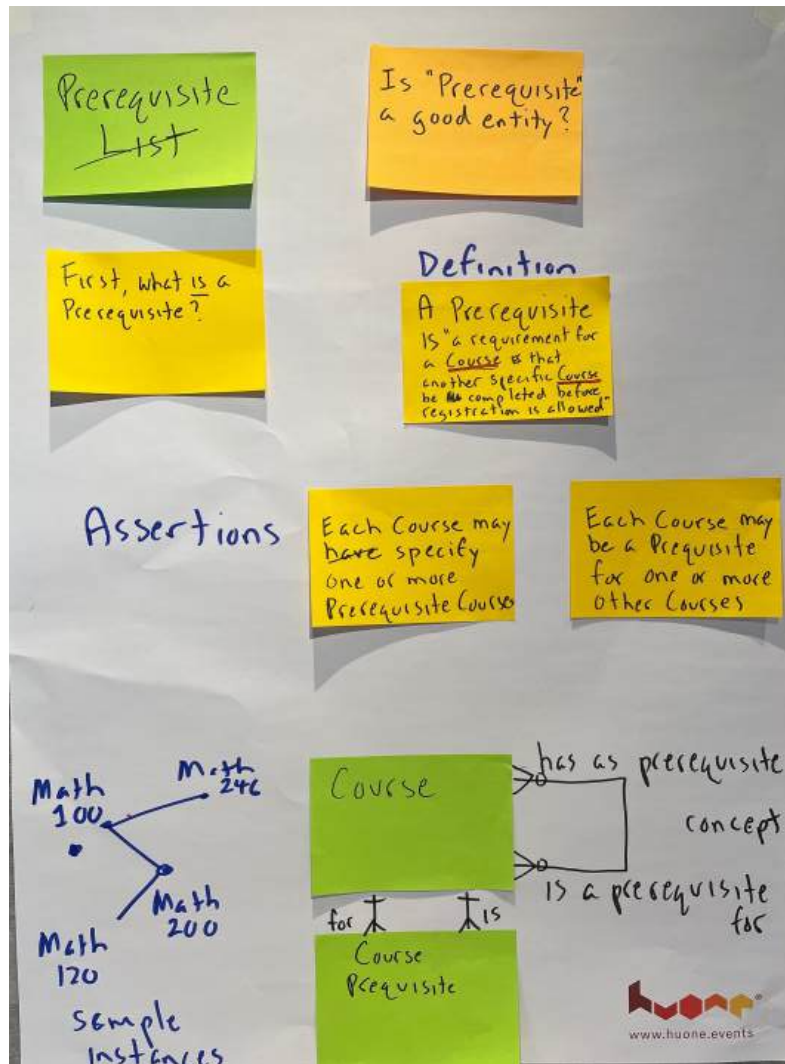 Prerequisite
List
Is "Prerequisite"
a good entity?
First, what is a
Prerequisite?
Definition
A Prerequisite
Is "a requirement for
a Course that
another specific Course
be completed before
registration is allowed"
Assertions
Each Course may
have specify
one or more
Prerequisite Courses
Each Course may
be a Prequisite
for one or more
other Courses
Math
100
Math
246
Math
200
Math
120
sample
instances
Course
has as prerequisite
concept
is a prerequisite
for
for
is
Course
Prequisite
huone
www.huone.events